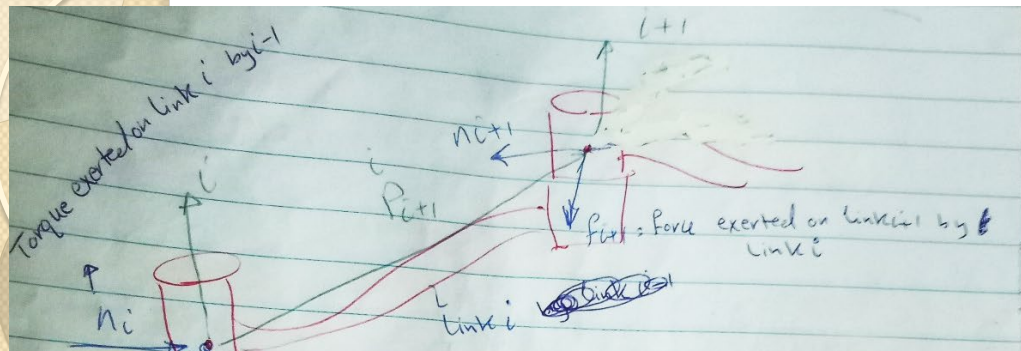 i+1
Torque exerted on link i by i-1
n i+1
i
i
P i+1
f i+1 = Force exerted on link i-1 by
link i
n i
link i